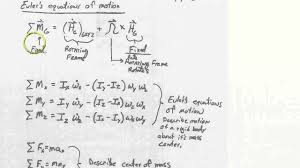 Euler's equations of motion
ΣM⃗_G = (H⃗̇_G)_wrt2 + Ω⃗ × H⃗_G
Rotating Frame
Fixed
Rotating Frame
Rotates
ΣM_x = I_x ω̇_x − (I_y − I_z) ω_y ω_z
ΣM_y = I_y ω̇_y − (I_z − I_x) ω_z ω_x
ΣM_z = I_z ω̇_z − (I_x − I_y) ω_x ω_y
Euler's equations of motion
Describe motion of a rigid body about it's mass center.
ΣF_x = ma_x
ΣF_y = ma_y
Describe center of mass